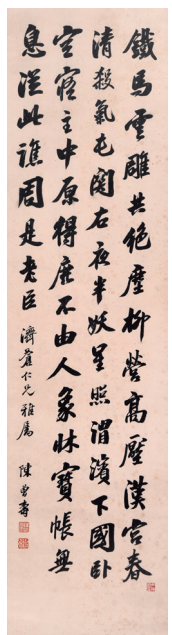 鐵馬雲雕共絕塵柳營高壓漢宮春
清殺氣屯関右夜半妖星照渭濱下國臥
空寤主中原得鹿不由人象牀寶帳無
息從此譙周是老臣 濟蒼仁兄雅屬 陳曾壽